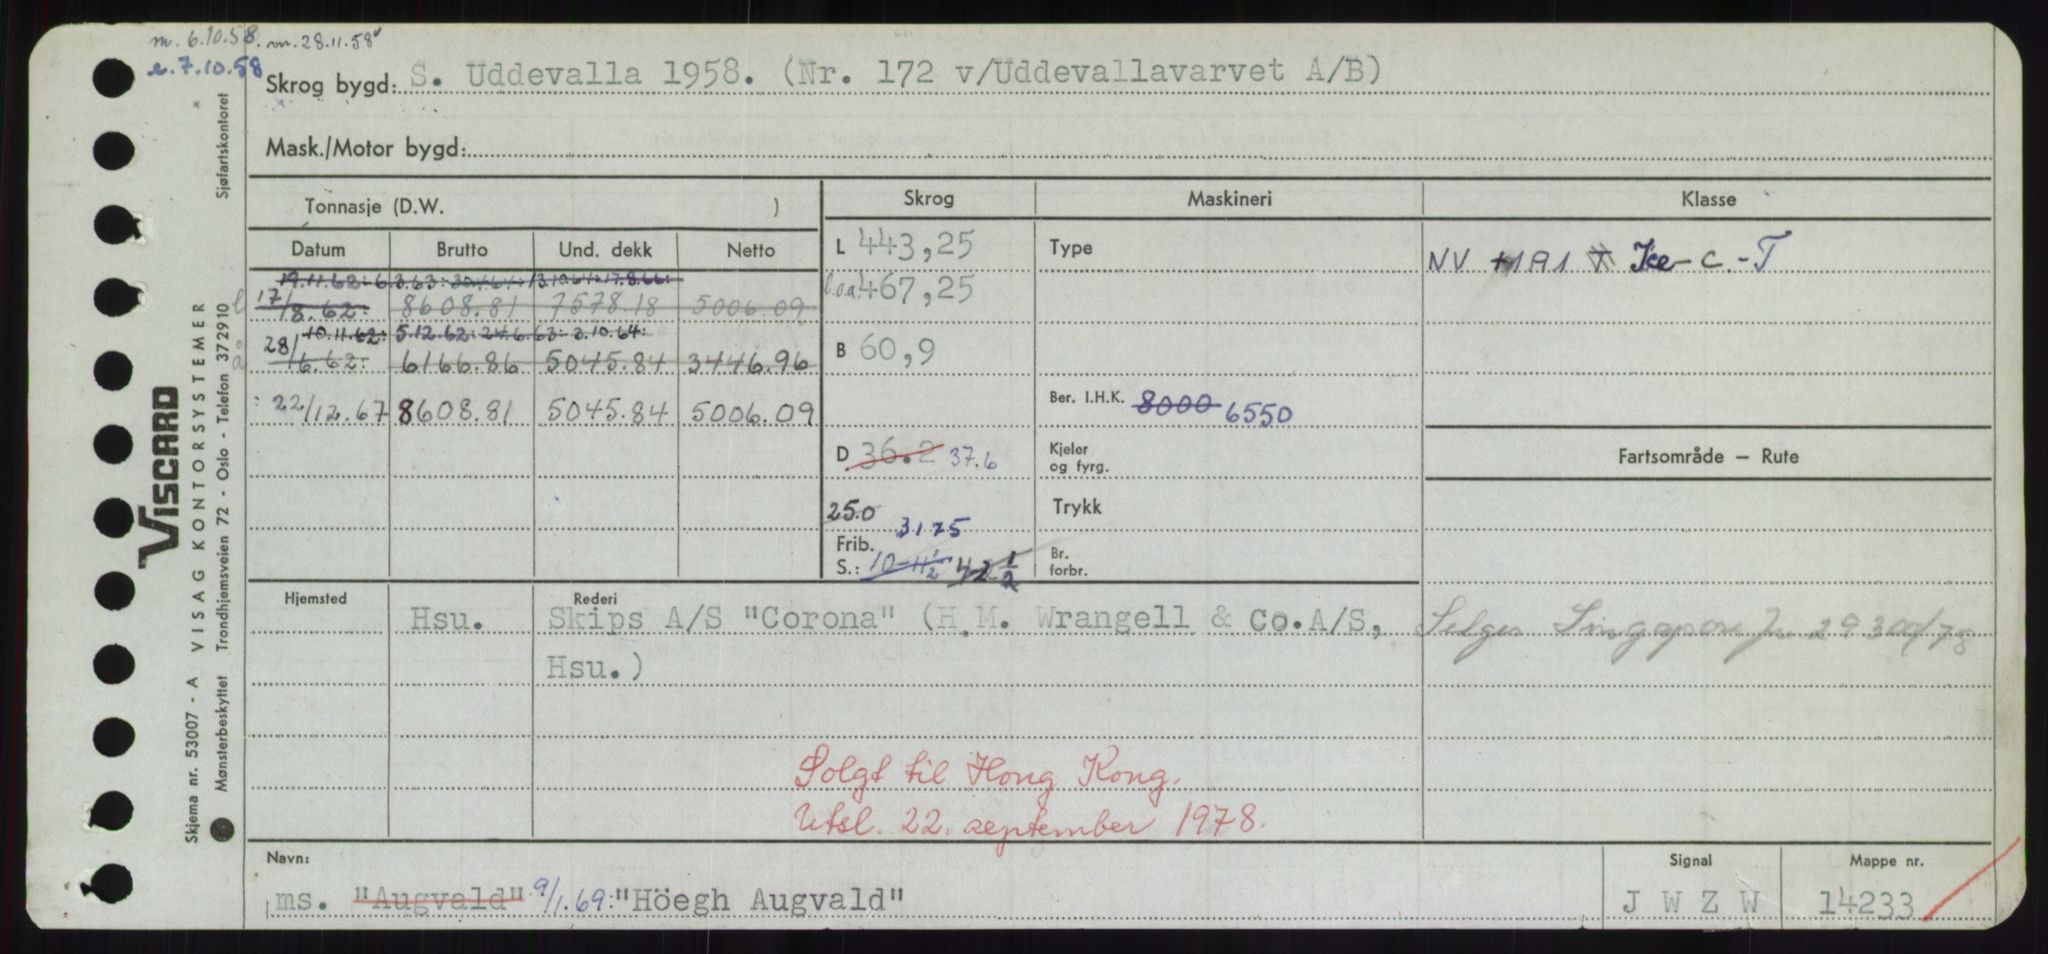 m. 6.10.58. m. 28.11.58
e. 7.10.58
Skrog bygd: S. Uddevalla 1958. (Nr. 172 v/Uddevallavarvet A/B)
Mask./Motor bygd:
Tonnasje (D.W. )
Skrog Maskineri Klasse
Datum Brutto Und. dekk Netto
L 443,25 Type NV +1A1 Ice-C.-T
19.11.62: 6.3.63: 13.10.64: 17.8.66:
17/8.62: 8608.81 7578.18 5006.09
l.o.a. 467,25
10.11.62: 5.12.62: 24.6.63: 2.10.64:
28/6.62: 6166.86 5045.84 3446.96
B 60,9
22/12.67 8608.81 5045.84 5006.09
Ber. I.H.K. 8000 6550
D 36.2 37.6
Kjeler og fyrg.
Fartsområde – Rute
25.0 31.75
Trykk
Frib.
S.: 10-11½ 42½
Br. forbr.
Hjemsted Rederi
Hsu. Skips A/S "Corona" (H.M. Wrangell & Co. A/S,
Hsu.)
Selges Singapore 29300/78
Solgt til Hong Kong.
Utsl. 22. september 1978.
Navn: Signal Mappe nr.
ms. "Augvald" 9/1.69: "Höegh Augvald" J W Z W 14233
VISCARD
Skjema nr. 53007 - A VISAG KONTORSYSTEMER
Mønsterbeskyttet Trondhjemsveien 72 - Oslo - Telefon 372910
Sjøfartskontoret